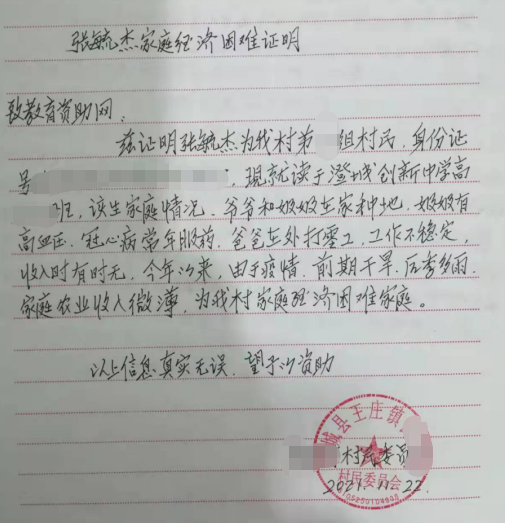 张毓杰家庭经济困难证明
致教育资助网:
兹证明张毓杰为我村第 组村民,身份证
号 ,现就读于澄城创新中学高
班,该生家庭情况,爷爷和奶奶在家种地,奶奶有
高血压、冠心病常年服药,爸爸在外打零工,工作不稳定,
收入时有时无,今年以来,由于疫情,前期干旱,后季多雨,
家庭农业收入微薄,为我村家庭经济困难家庭。
以上信息真实无误,望予以资助
城县王庄镇
村民委员
村民委员会
2021.11.22.